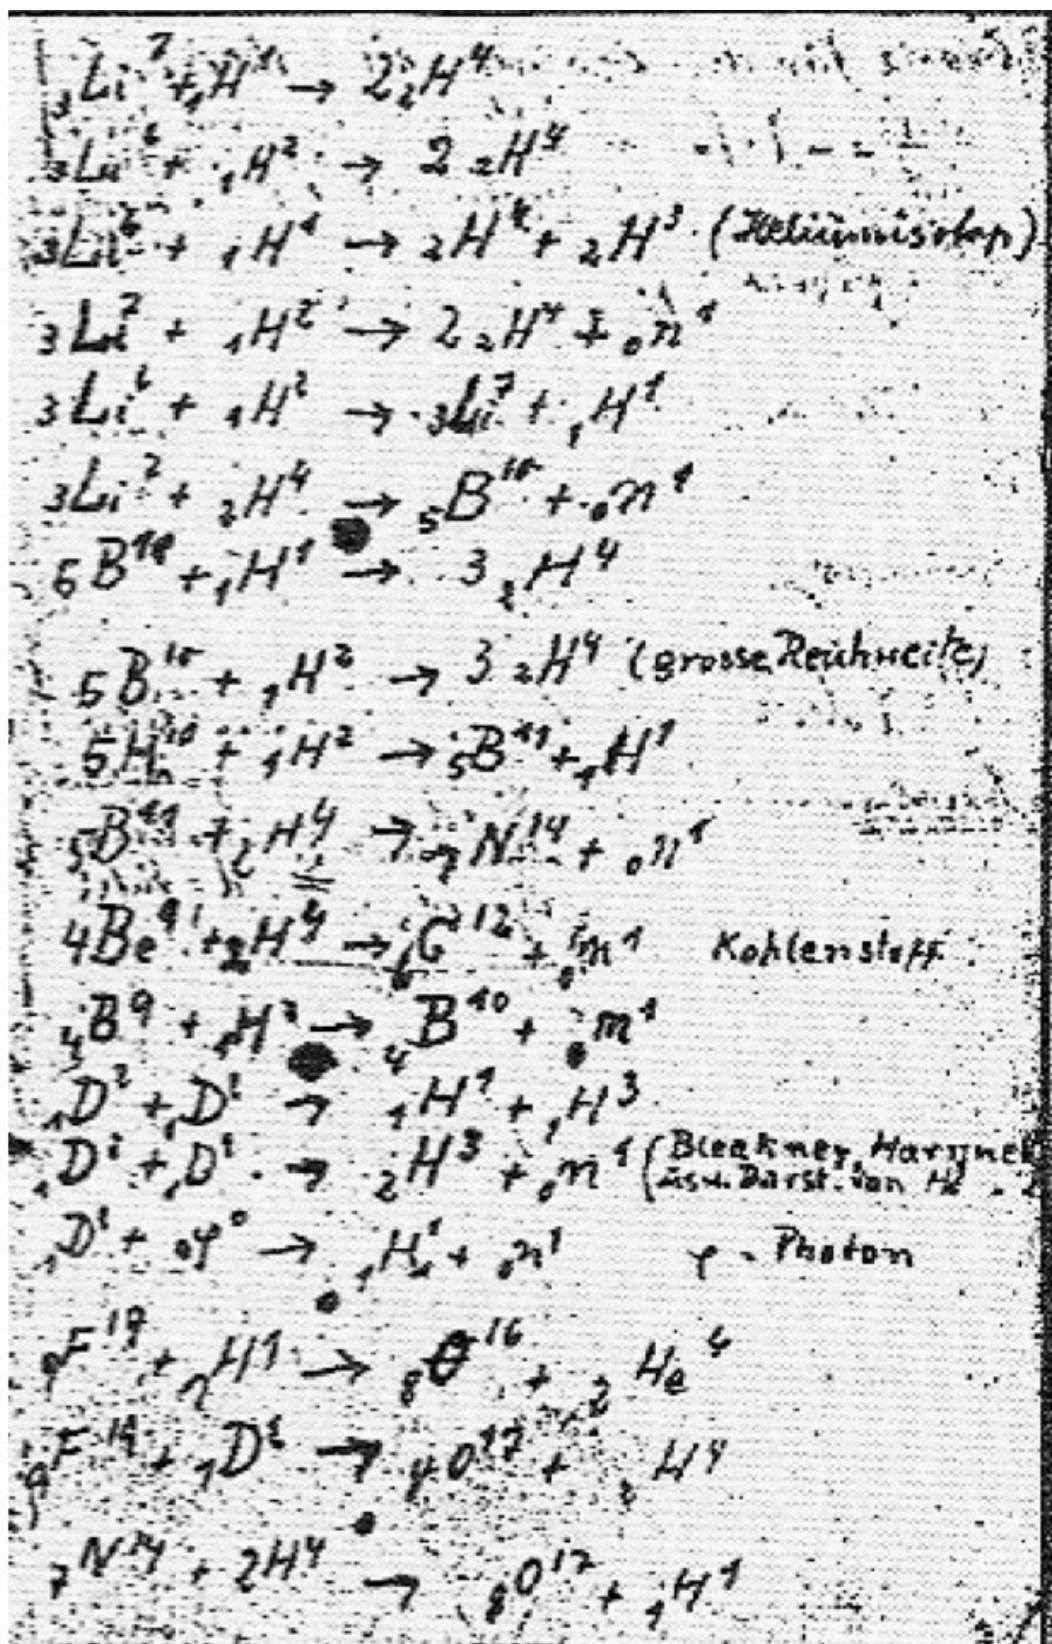 ₃Li⁷ + ₁H¹ → 2 ₂H⁴
₃Li⁶ + ₁H² → 2 ₂H⁴
₃Li⁶ + ₁H¹ → ₂H⁴ + ₂H³ (Heliumisotop)
₃Li⁷ + ₁H² → 2 ₂H⁴ + ₀n¹
₃Li⁶ + ₁H² → ₃Li⁷ + ₁H¹
₃Li⁷ + ₂H⁴ → ₅B¹⁰ + ₀n¹
₅B¹¹ + ₁H¹ → 3 ₂H⁴
₅B¹⁰ + ₁H² → 3 ₂H⁴ (grosse Reichweite)
₅H¹⁰ + ₁H² → ₅B¹¹ + ₁H¹
₅B¹¹ + ₂H⁴ → ₇N¹⁴ + ₀n¹
₄Be⁹ + ₂H⁴ → ₆C¹² + ₀n¹ Kohlenstoff
₄B⁹ + ₁H² → ₄B¹⁰ + ₀n¹
₁D² + ₁D² → ₁H¹ + ₁H³
₁D² + ₁D² → ₂H³ + ₀n¹ (Bleakney, Harnwell
usw. Darst. von He
₁D² + ₀φ⁰ → ₁H¹ + ₀n¹ φ - Photon
₉F¹⁹ + ₁H1 → ₈O¹⁶ + ₂He⁴
₉F¹⁹ + ₁D² → O¹⁷ + ₂H⁴
₇N¹⁴ + ₂H⁴ → ₈O¹⁷ + ₁H¹